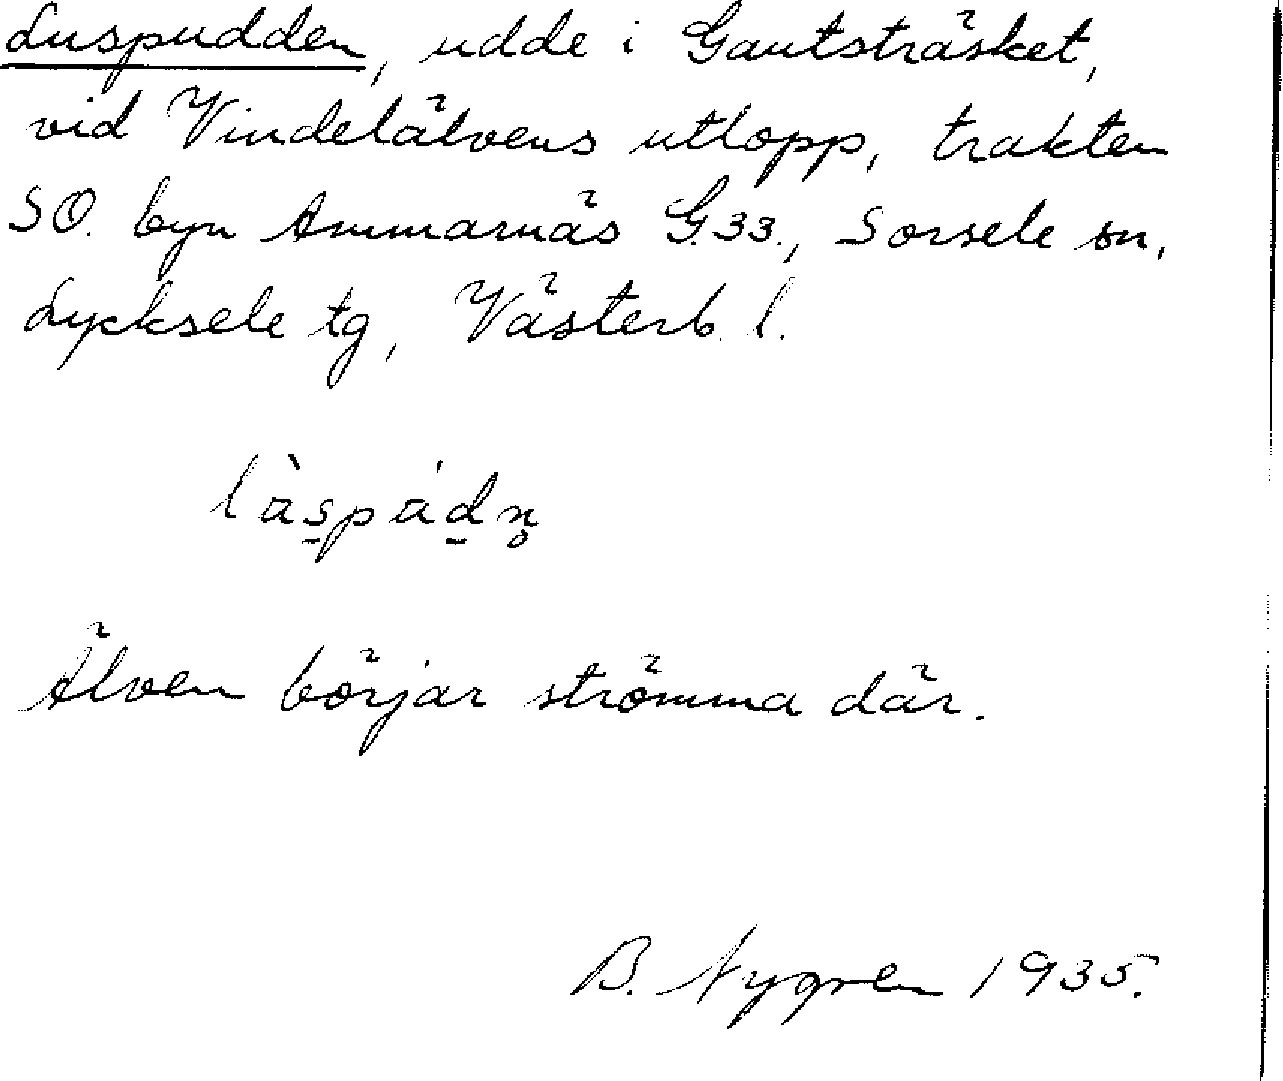 Luspudden, udde i Gautsträsket,
vid Vindelälvens utlopp, trakten
SO. byn Ammarnäs G.33., Sorsele sn,
Lycksele tg, Västerb. l.
làs̱páḏn̥
Älven börjar strömma där.
B. Nygren 1935.